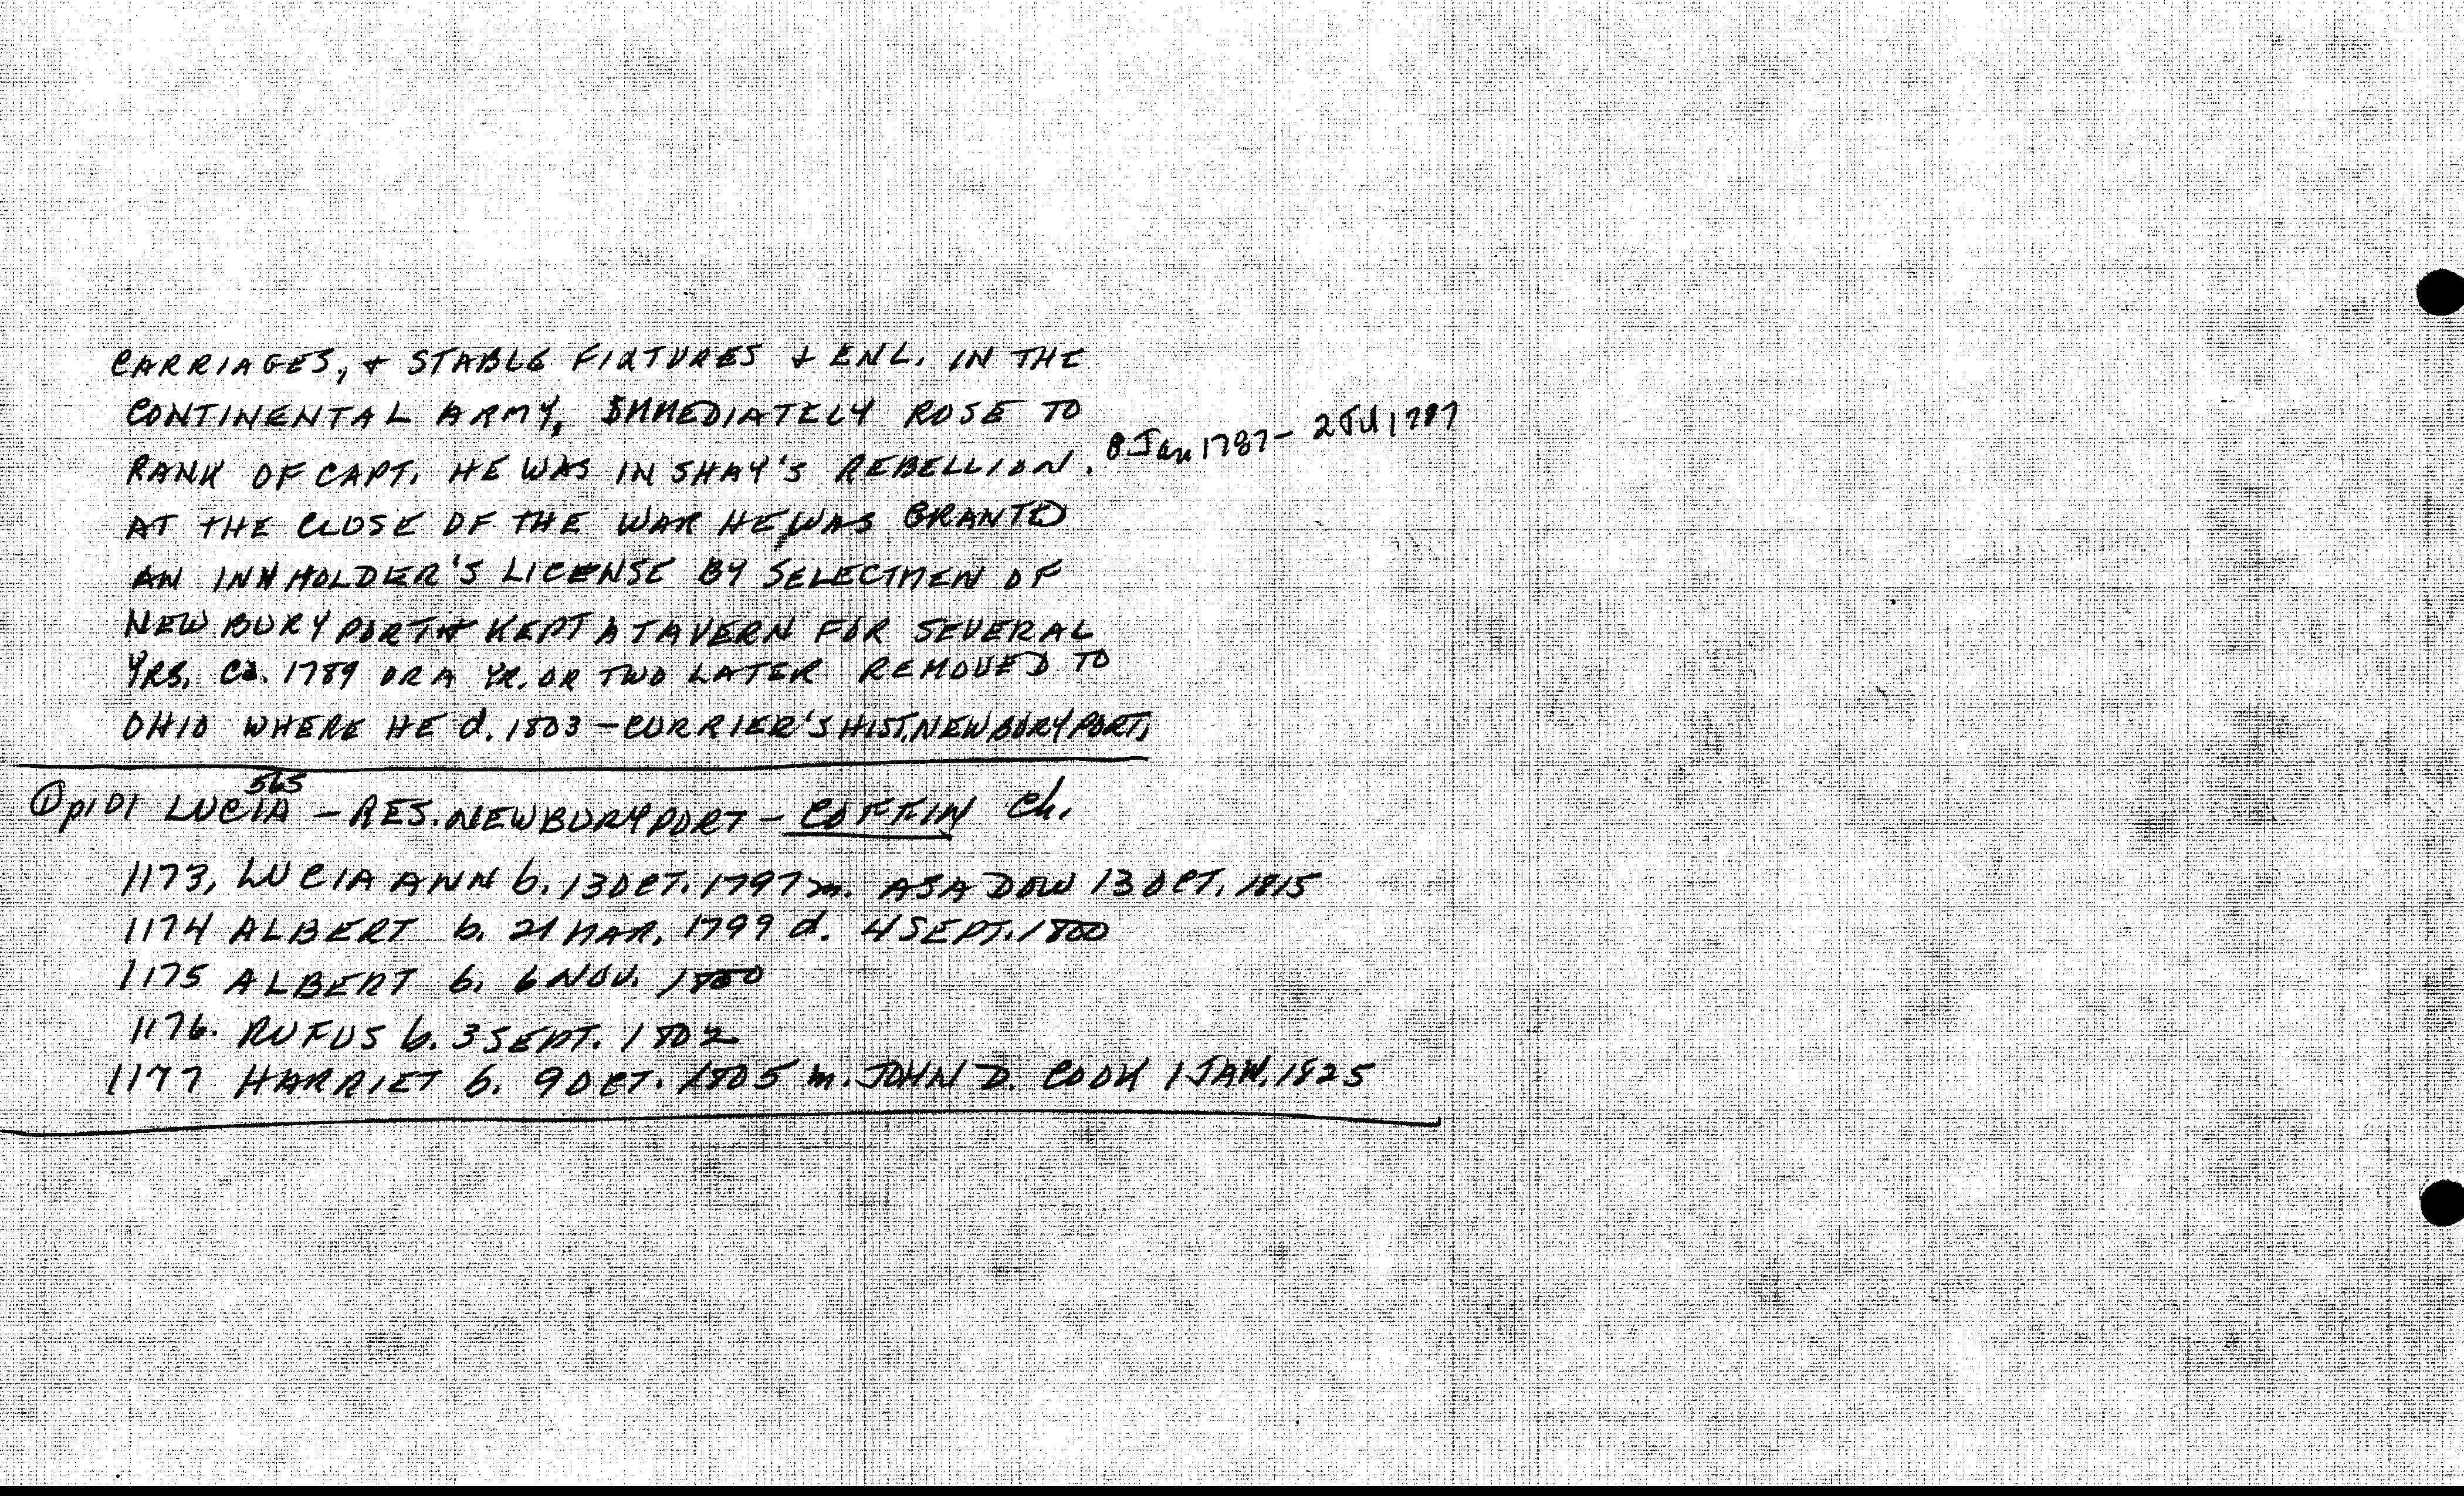 CARRIAGES, + STABLE FIXTURES + ENL. IN THE
CONTINENTAL ARMY, IMMEDIATELY ROSE TO
RANK OF CAPT. HE WAS IN SHAY'S REBELLION. 8 Jan 1787 - 2 Jul 1787
AT THE CLOSE OF THE WAR HE WAS GRANTED
AN INNHOLDER'S LICENSE BY SELECTMEN OF
NEWBURYPORT + KEPT A TAVERN FOR SEVERAL
YRS. Ca. 1789 OR A YR. OR TWO LATER REMOVED TO
OHIO WHERE HE d. 1803 - CURRIER'S HIST. NEWBURYPORT,
565
① p101 LUCIA - RES. NEWBURYPORT - COFFIN Ch.
1173, LUCIA ANN b. 13 OCT. 1797 m. ASA DOW 13 OCT. 1815
1174 ALBERT b. 21 MAR. 1799 d. 4 SEPT. 1800
1175 ALBERT b. 6 NOV. 1800
1176. RUFUS b. 3 SEPT. 1802
1177 HARRIET b. 9 OCT. 1805 m. JOHN D. COOK 1 JAN. 1825